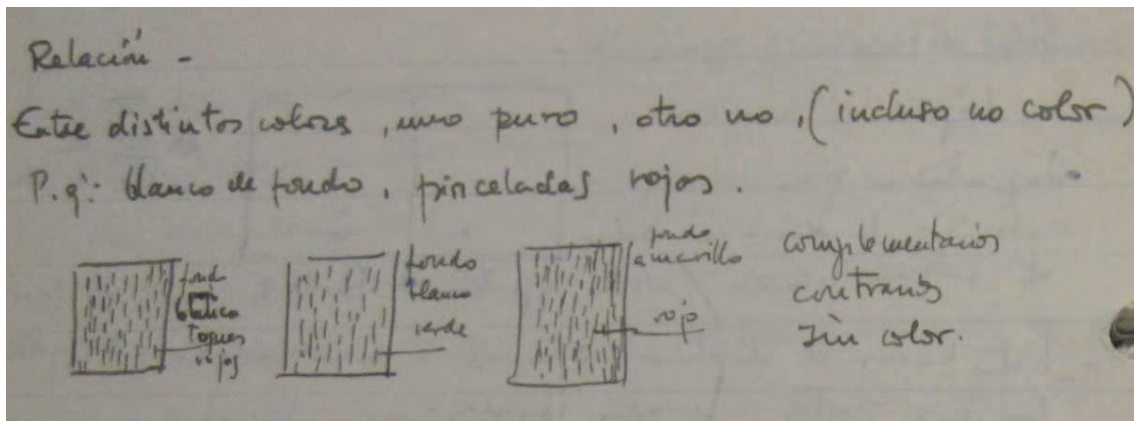 Relación -
Entre distintos colores, uno puro, otro no, (incluso no color)
P. ej: blanco de fondo, pinceladas rojas.
fondo
blanco
toques
rojos
fondo
blanco
verde
fondo
amarillo
rojo
complementarios
contrarios
sin color.